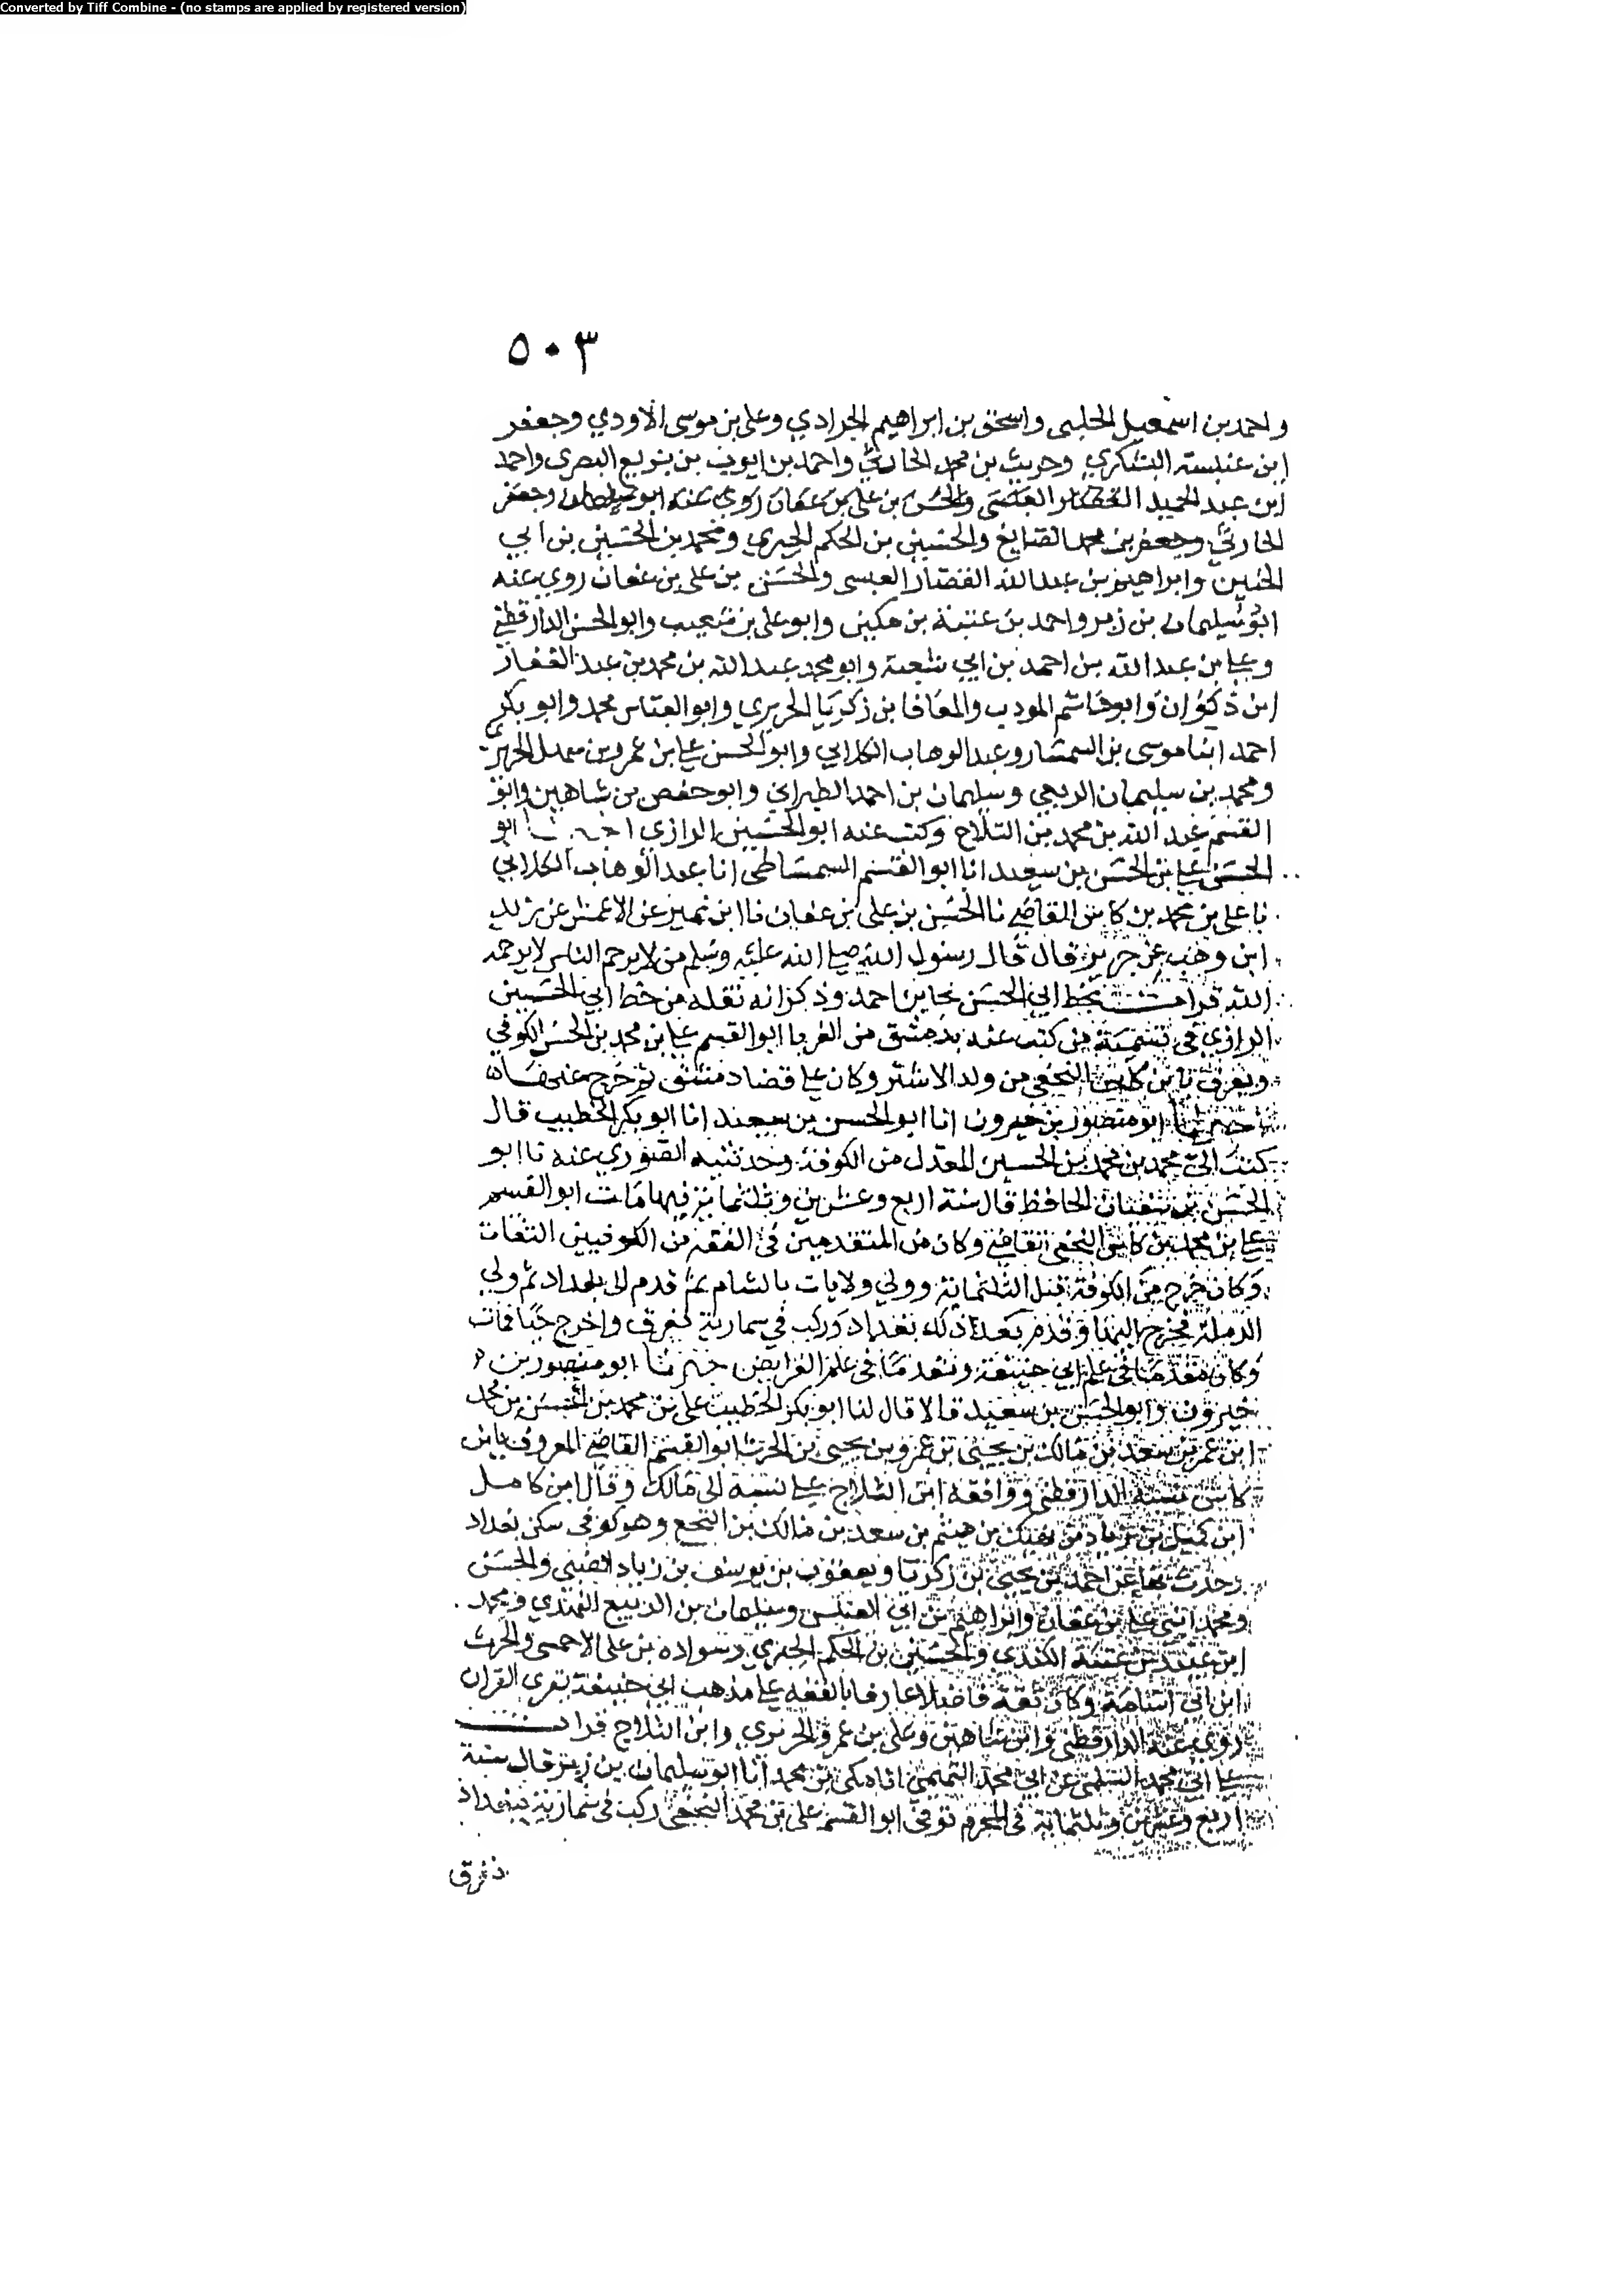 Converted by Tiff Combine - (no stamps are applied by registered version)
٥٠٣
واحمد بن اسمعيل الحلبى واسحق بن ابراهيم الجرادي وعلى بن موسى الاودي وجعفر
ابن عنبسة اليشكري وحريث بن محمد الحارثي واحمد بن ايوب بن بزيع البصرى واحمد
ابن عبد الحميد العبسى والحسن بن على بن عفان روى عنه ابو سليمان وجعفر
الحارثي وجعفر بن محمد الصايغ والحسين بن الحكم الحبري ومحمد بن الحسين بن ابي
الحنين وابراهيم بن عبد الله القصار العبسى والحسن بن على بن عفان روى عنه
ابو سليمان بن زبر واحمد بن عتبة بن مكين وابو على بن شعيب وابو الحسن الدارقطني
وعلي بن عبد الله بن احمد بن ابي شعبة وابو محمد عبد الله بن محمد بن عبد الغفار
ابن ذكوان وابو هاشم المودب والمعافا بن زكريا الجريري وابو العباس محمد وابو بكر
احمد ابنا موسى بن السمسار وعبد الوهاب الكلابي وابو الحسن علي بن عمرو بن سهل الحريري
ومحمد بن سليمان الربعي وسليمان بن احمد الطبراني وابو حفص بن شاهين وابو
القسم عبد الله بن محمد بن الثلاج وكتب عنه ابو الحسين الرازي ابو
الحسن علي بن الحسن بن سعيد انا ابو القسم السمساطى انا عبد الوهاب الكلابي
نا على بن محمد بن كاس القاضي نا الحسن بن على بن عفان نا ابن نمير عن الاعمش عن زيد
ابن وهب عن جرير قال قال رسول الله صلى الله عليه وسلم من لا يرحم الناس لا يرحمه
الله قرات بخط ابي الحسن نجا بن احمد وذكر انه نقله من خط ابي الحسين
الرازي في تسمية من كتب عنه بدمشق من الغربا ابو القسم علي بن محمد بن الحسن الكوفي
ويعرف بابن كاس النخعي من ولد الاشتر وكان علي قضا دمشق ثم خرج عنها
اخبرنا ابو منصور بن خيرون انا ابو الحسن بن سعيد انا ابو بكر الخطيب قال
كتب الي محمد بن محمد بن الحسين المعدل من الكوفة وحدثنيه الصوري عنه نا ابو
الحسن بن سفيان الحافظ قال سنة اربع وعشرين وثلثماية فيها مات ابو القسم
علي بن محمد بن كاس النخعي القاضي وكان من المتقدمين في الفقه من الكوفيين الثقات
وكان خرج من الكوفة قبل الثلثماية وولي ولايات بالشام ثم قدم الى بغداد ثم ولي
الرملة فخرج اليها وقدم بعد ذلك بغداد وركب في سمارية فغرق واخرج حيا فمات
وكان مقدما في علم ابي حنيفة ومقدما في علم الفرايض اخبرنا ابو منصور بن
خيرون وابو الحسن بن سعيد قالا قال لنا ابو بكر الخطيب على بن محمد بن الحسن بن محمد
ابن عمر بن سعد بن مالك بن يحيى بن عمرو بن يحيى بن الحرث ابو القسم القاضي المعروف بابن
كاس نسبه الدارقطني ووافقه ابن الثلاج علي نسبه الى مالك وقال ابن كامل
ابن كميل بن زياد بن نهيك بن هيثم بن سعد بن مالك بن النخع وهو كوفى سكن بغداد
وحدث بها عن احمد بن يحيى بن زكريا ويعقوب بن يوسف بن زياد الضبي والحسن
ومحمد ابني علي بن عفان وابراهيم بن ابي العنبس وسليمان بن الربيع النهدي ومحمد
ابن عبيد بن عتبة الكندي والحسين بن الحكم الحبري وسوادة بن على الاحمسى والحرث
ابن ابي اسامة وكان ثقة فاضلا عارفا بالفقه علي مذهب ابي حنيفة يقرى القران
روى عنه الدارقطني وابن شاهين وعلى بن عمرو الحريري وابن الثلاج قرات
علي ابي محمد السلمى عن ابي محمد التميمي انا مكى بن محمد انا ابو سليمان بن زبر قال سنة
اربع وعشرين وثلثماية في المحرم توفى ابو القسم على بن محمد النخعي ركب في سمارية ببغداد